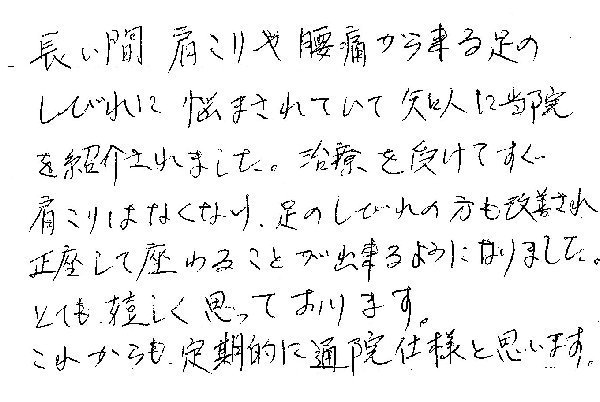 長い間 肩こりや腰痛から来る足の
しびれに 悩まされていて 知人に当院
を紹介されました。治療を受けてすぐ
肩こりはなくなり、足のしびれの方も改善され
正座して座わることが出来るようになりました。
とても嬉しく思っております。
これからも、定期的に通院仕様と思います。